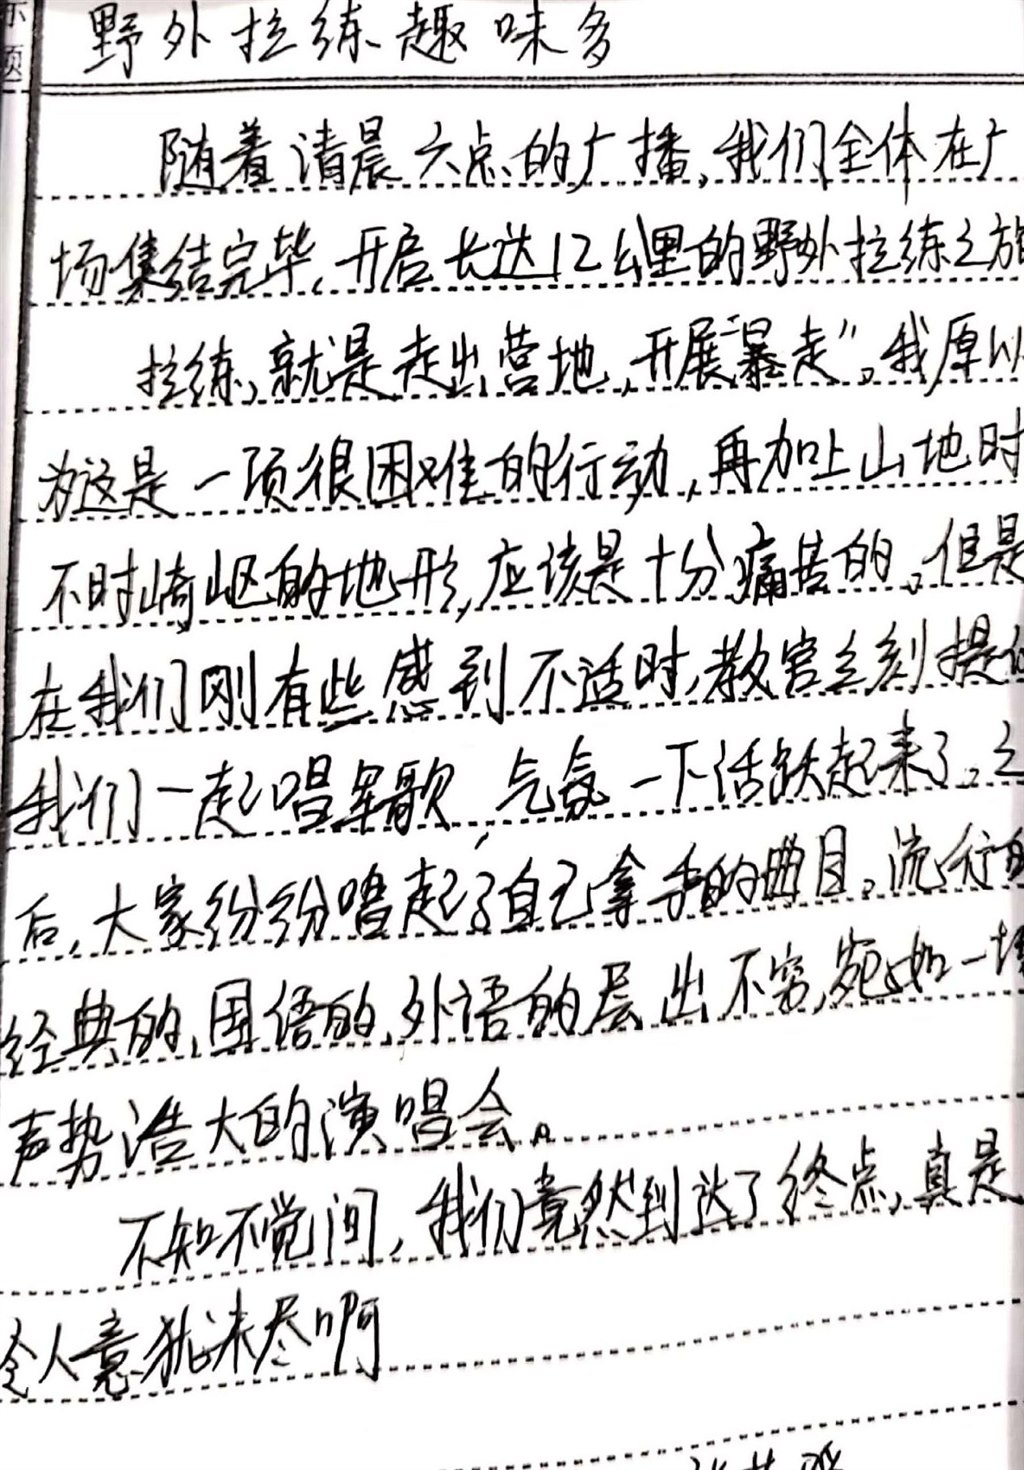 标
题
野外拉练趣味多
随着清晨六点的广播,我们全体在广
场集结完毕,开启长达12公里的野外拉练之旅
拉练,就是走出营地,开展“暴走”。我原以
为这是一项很困难的行动,再加上山地时
不时崎岖的地形,应该是十分痛苦的。但是
在我们刚有些感到不适时,教官立刻提
我们一起唱军歌,气氛一下活跃起来了。之
后,大家纷纷唱起了自己拿手的曲目。流行的
经典的、国语的、外语的层出不穷,宛如一场
声势浩大的演唱会。
不知不觉间,我们竟然到达了终点,真是
令人意犹未尽啊